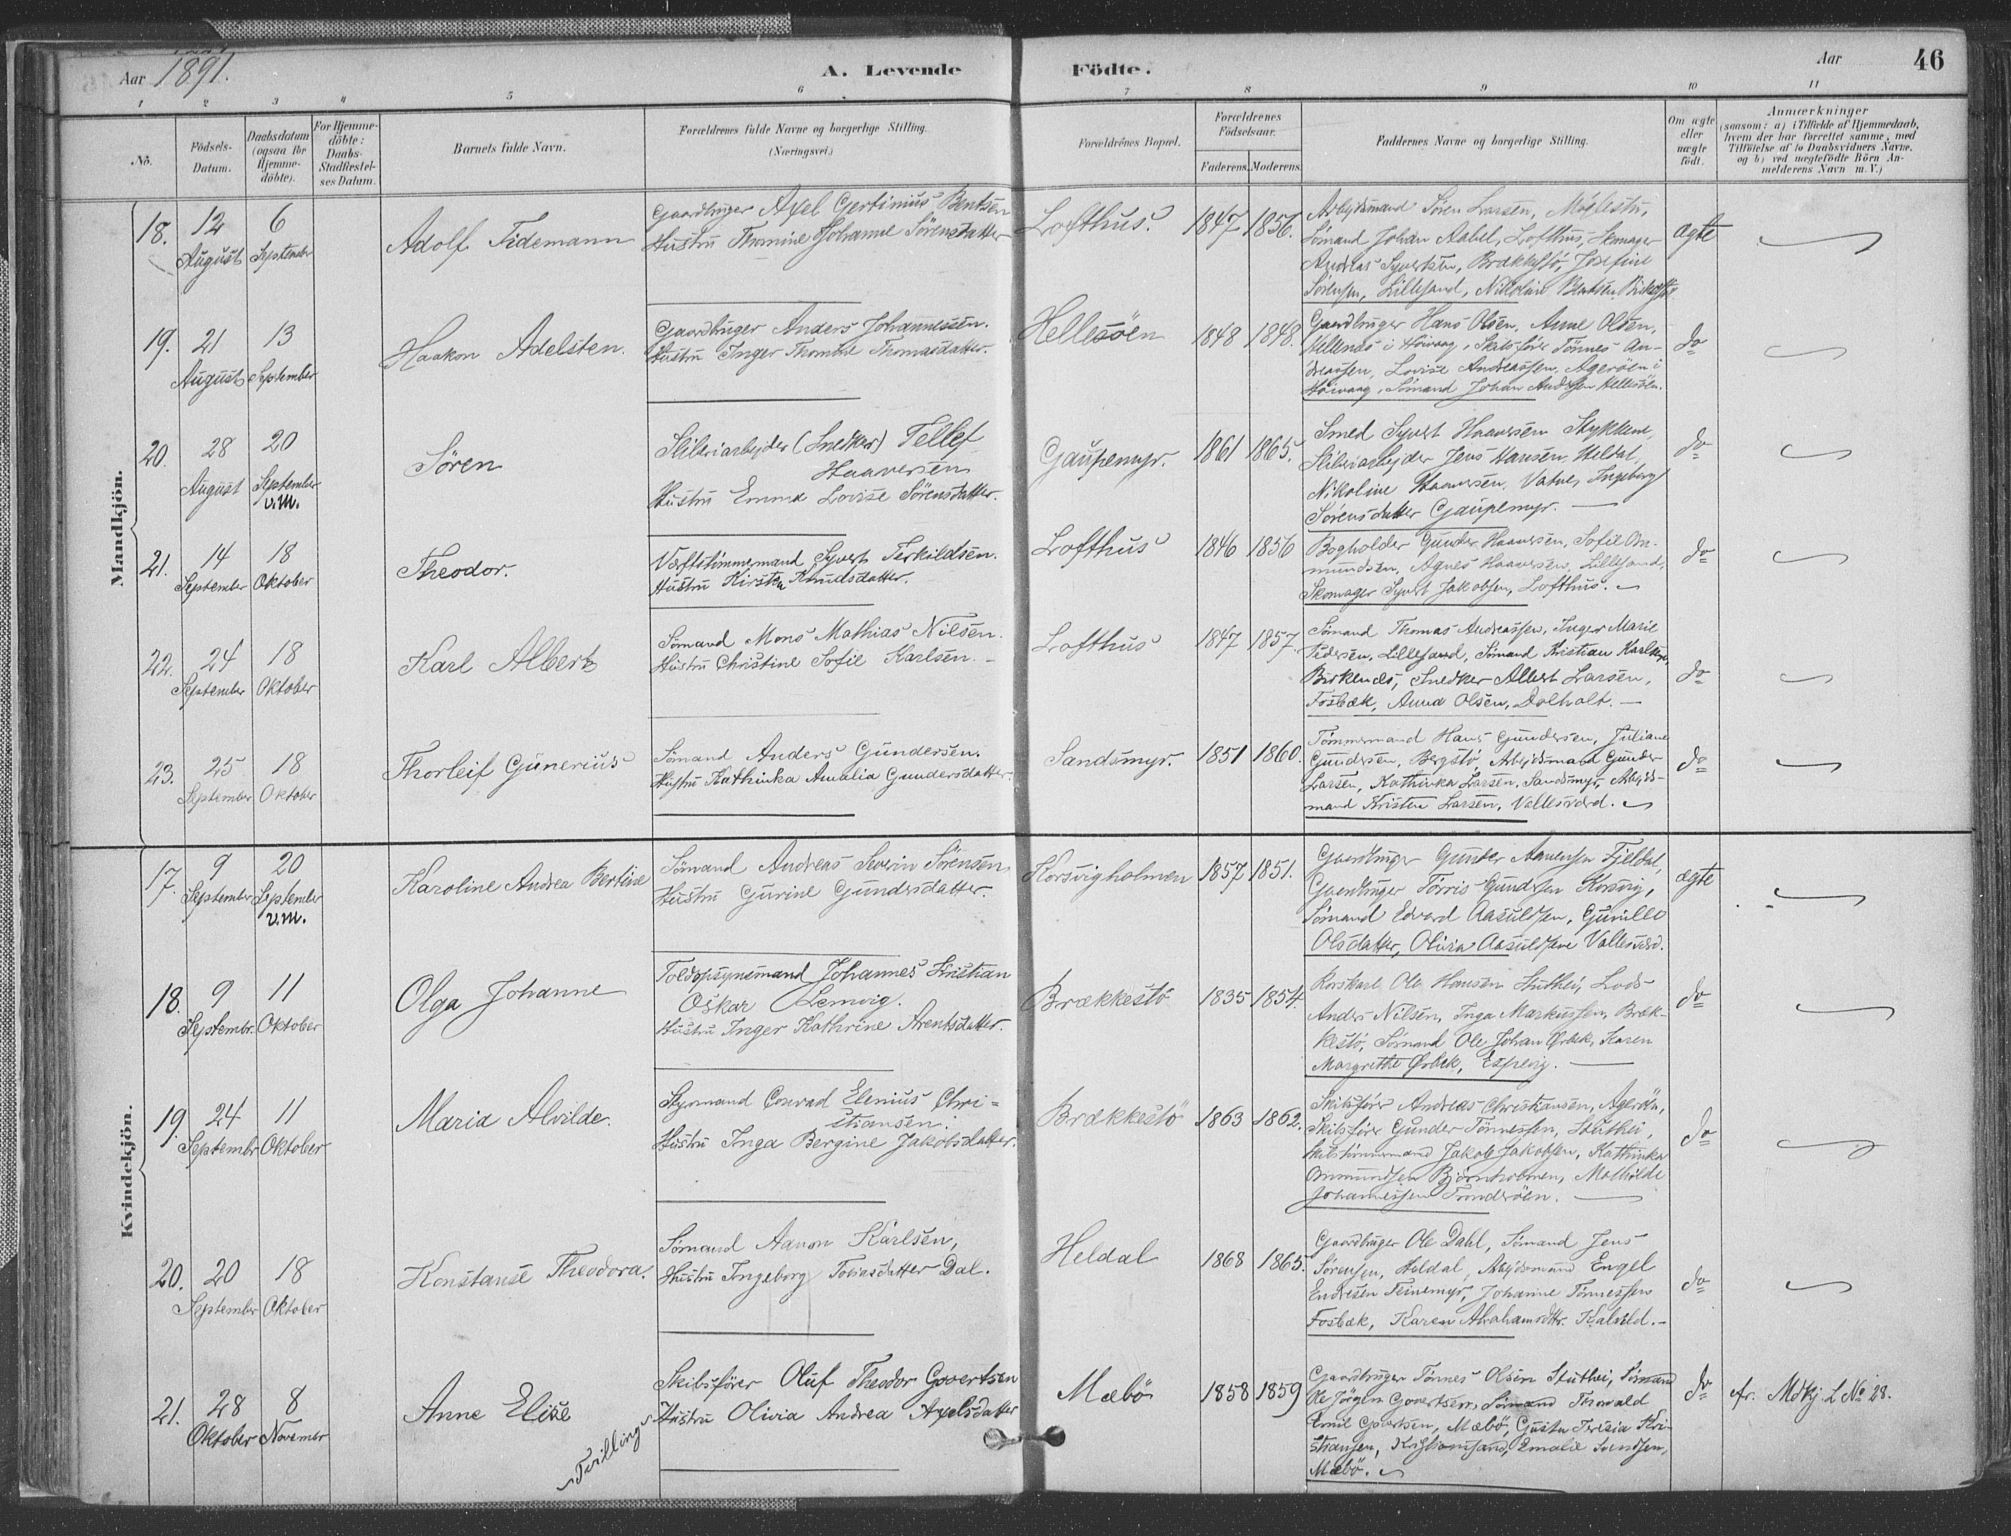 Aar 1891.
A. Levende
Födte.
Aar
46
1 2 3 4 5 6 7 8 9 10 11
No.
Födsels-Datum.
Daabsdatum (ogsaa for Hjemme-döbte).
For Hjemme-döbte: Daabs-Stadfæstel-ses Datum.
Barnets fulde Navn.
Forældrenes fulde Navne og borgerlige Stilling. (Næringsvei.)
Forældrenes Bopæl.
Forældrenes Födselsaar.
Faderens. Moderens.
Faddernes Navne og borgerlige Stilling.
Om ægte eller uægte födt.
Anmærkninger
(saasom: a) i Tilfælde af Hjemmedaab, hvem der har forrettet samme, med Tilföielse af to Daabsvidners Navne, og b) ved uægtefödte Börn An-melderens Navn m. V.)
Mandkjön.
18. 12 August 6 September
Adolf Tidemann
Gaardbruger Axel Gertinius Bentsen
Hustru Thomine Johanne Sörensdatter
Lofthus. 1847 1856.
Arbejdsmand Sören Larsen, Möglestu,
Sömand Johan Aabel, Lofthus, Skomager
Andreas Syvertsen, Brækkestö, Josefine
Sörensen, Lillesand, Nikoline Bentsen
ægte
19. 21 August 13 September
Haakon Adelsten.
Gaardbruger Anders Johannessen.
Hustru Inger Thomine Thomasdatter.
Hellesöen 1848 1848.
Gaardbruger Hans Olsen, Anne Olsen,
i Höivaag, Skibsförer Tönnes An-
dreassen, Lovise Andreassen, Ageröen i
Höivaag, Sömand Johan Andersen Hellesöen.
do
20. 28 August 20 September v.m.
Sören
Sliberiarbejder (Snedker) Tellef
Haaversen
Hustru Emma Lovise Sörensdatter.
Gaupemyr. 1861 1865.
Smed Syvert Haaversen Stykkene,
Sliberiarbejder Jens Hansen Heldal,
Nikoline Haaversen, Vatne, Ingeborg
Sörensdatter Gaupemyr.
do
21. 14 September 18 Oktober
Theodor.
Værftstömmermand Syvert Terkildsen.
Hustru Kirsten Knudsdatter.
Lofthus 1846 1856
Bogholder Gunder Haaversen, Sofie Om-
mundsen, Agnes Haaversen, Lillesand,
Skomager Syvert Jakobsen, Lofthus.
do
22. 24 September 18 Oktober
Karl Albert
Sömand Mons Mathias Nilsen.
Hustru Christine Sofie Karlsen.
Lofthus 1847 1857.
Sömand Thomas Andreassen, Inger Marie
Pedersen, Lillesand, Sömand Kristian Karlsen,
Birkenes, Snedker Albert Larsen,
Fosbæk, Anna Olsen, Dalholt.
do
23. 25 September 18 Oktober
Thorleif Gunerius
Sömand Anders Gundersen.
Hustru Kathinka Amalia Gundersdatter.
Sandsmyr. 1851 1860.
Tömmermand Hans Gundersen, Juliane
Gundersen, Bergstö, Arbejdsmand Gunder
Larsen, Kathinka Larsen, Sandsmyr, Arbejds-
mand Kristen Larsen, Vallesværd.
do
Kvindekjön.
17. 9 September 20 September v.m.
Karoline Andrea Bertine
Sömand Andreas Severin Sörensen,
Hustru Gurine Gundersdatter.
Korsvigholmen 1857 1851.
Gaardbruger Gunder Aanensen Fjeldal,
Gaardbruger Törris Gundersen Korsvig,
Sömand Edvard Aasuldsen, Gunille
Olsdatter, Olivia Aasuldsen Vallesværd.
ægte
18. 9 Septembr. 11 Oktober
Olga Johanne
Toldopsynsmand Johannes Kristian
Oskar Lemvig.
Hustru Inger Kathrine Arentsdatter.
Brækkestö 1835 1854.
Ole Hansen Stuthei, Lods
Anders Nilsen, Inga Markussen, Bræk-
kestö, Sömand Ole Johan Ørbek, Karen
Margrethe Ørbek, Espevig.
do
19. 24 Septembr 11 Oktober
Maria Alvilde.
Styrmand Conrad Elenius Chri-
stiansen.
Hustru Inga Bergine Jakobsdatter.
Brækkestö 1863 1862.
Skibsförer Andreas Christiansen, Ageröen,
Skibsförer Gunder Tönnessen, Stuthei,
Skibstömmermand Jakob Jakobsen, Kathinka
Ommundsen Björnholmen, Mathilde
Johannessen Tronderöen.
do
20. 20 September 18 Oktober
Konstanse Theodora.
Sömand Aanon Karlsen,
Hustru Ingeborg Tobiasdatter Dal.
Heldal 1868 1865.
Gaardbruger Ole Dahl, Sömand Jens
Sörensen, Heldal, Arbejdsmand Engel
Endresen Tennemyr, Johanne Tönnessen
Fosbæk, Karen Abrahamsdttr. Kalveld.
do
21. 28 Oktober 8 Novembr
Anne Elise
Tvilling
Skibsförer Oluf Theodor Govertsen
Hustru Olivia Andrea Axelsdatter
Mæbö 1858 1859
Gaardbruger Tönnes Olsen Stuthei, Sömand
Ole Jörgen Govertsen, Sömand Thorvald
Emil Govertsen, Mæbö, Gusta Teresia Kri-
stiansen, Kristiansand, Emalie Svendsen,
Mæbö.
do
fr. Mdkj. L No 28.